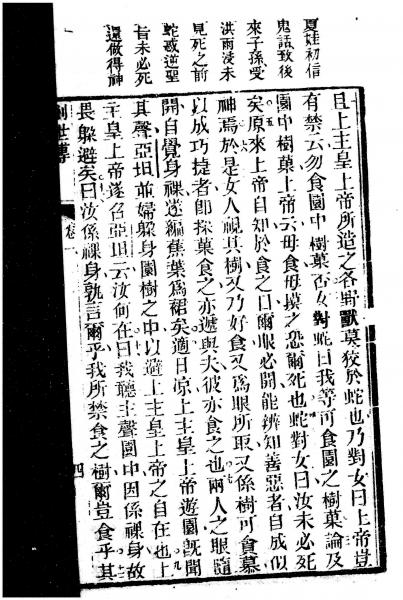 夏娃初信
鬼話致後
來子孫受
洪雨浸未
見死之前
蛇惑逆聖
旨未必死
還做得神
且上主皇上帝所造之各野獸莫狡於蛇也乃對女曰上帝豈
有禁云勿食園中樹菓否女對蛇曰我等可食園之樹菓論及
園中樹菓上帝云毋食毋摸之恐爾死也蛇對女曰汝未必死
矣原來上帝自知於食之日爾眼必開能辨知善惡者自成似
神焉於是女人視其樹又乃好食又爲眼所取又係樹可貪慕
以成巧捷者即採菓食之亦遞與夫彼亦食之也兩人之眼隨
開自覺身裸遂編蕉葉爲裙矣適日凉上主皇上帝遊園旣聞
其聲亞坦並婦躲身園樹之中以避上主皇上帝之自在也上
主皇上帝遂召亞坦云汝何在曰我聽主聲園中因係裸身故
畏躲避矣曰汝係裸身孰言爾乎我所禁食之樹爾豈食乎其
創世傳 卷一 四